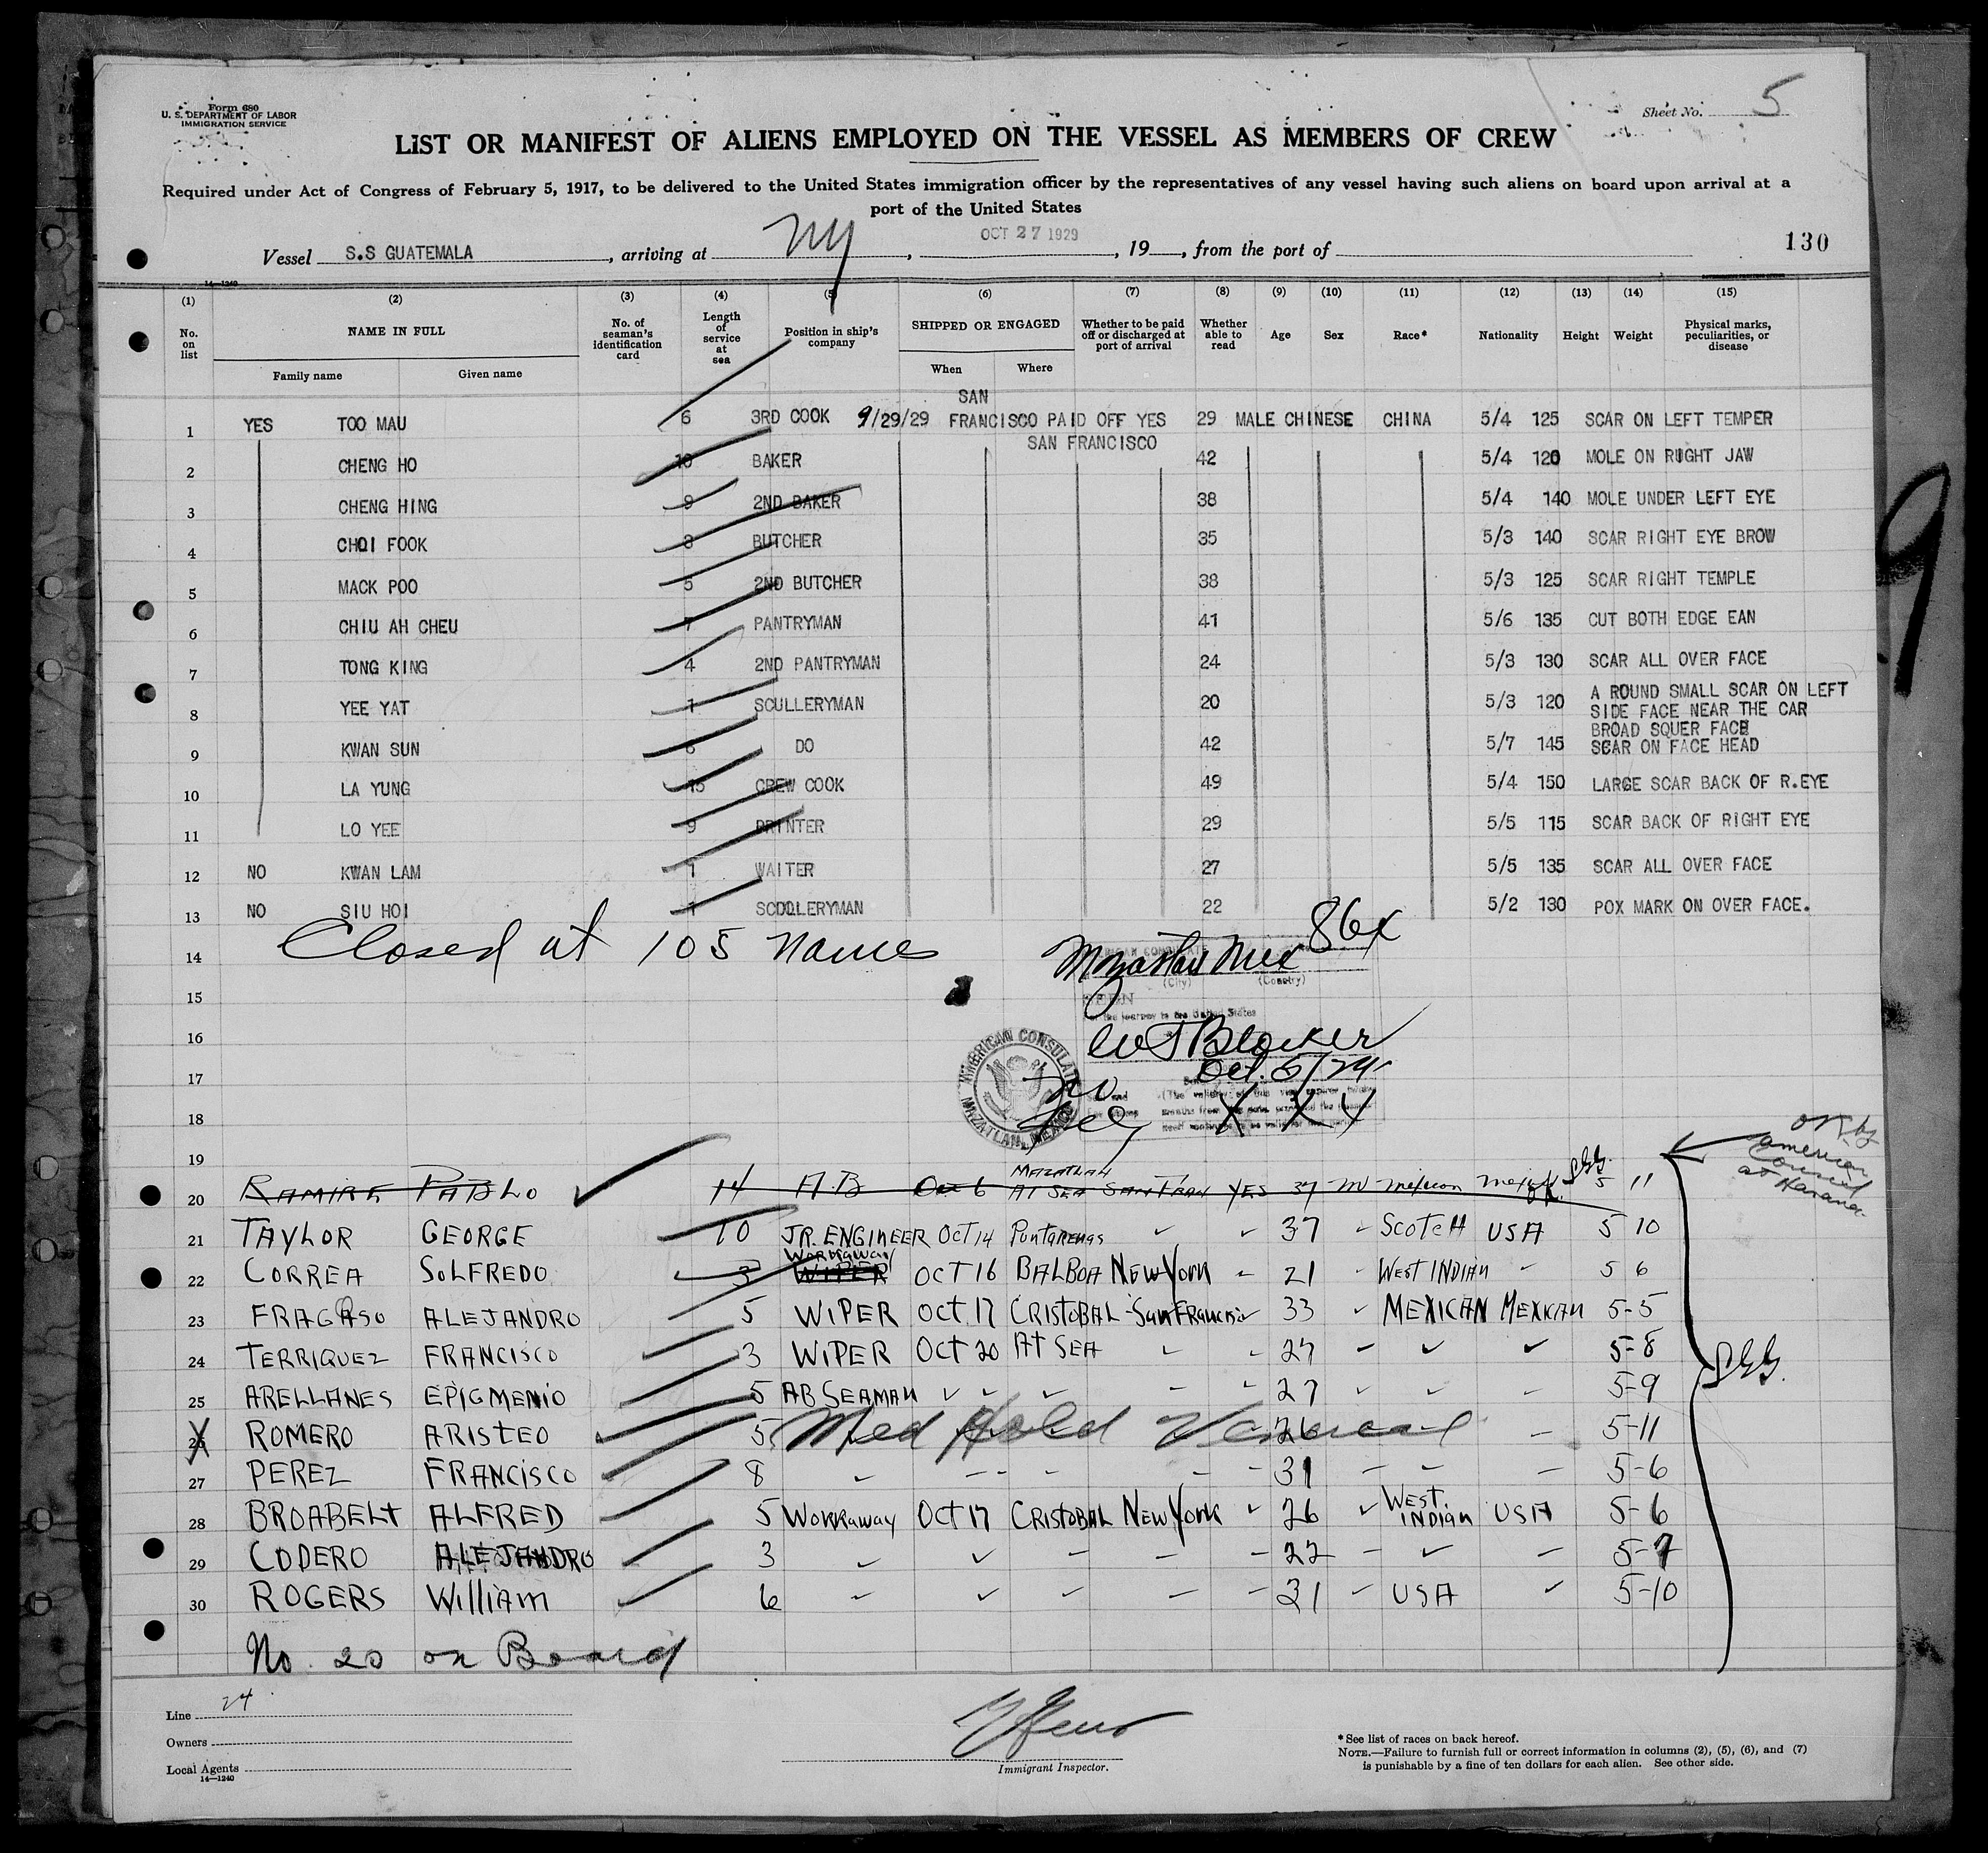 Form 680
U. S. DEPARTMENT OF LABOR
IMMIGRATION SERVICE
Sheet No. 5
LIST OR MANIFEST OF ALIENS EMPLOYED ON THE VESSEL AS MEMBERS OF CREW
Required under Act of Congress of February 5, 1917, to be delivered to the United States immigration officer by the representatives of any vessel having such aliens on board upon arrival at a
port of the United States
Vessel S.S GUATEMALA, arriving at NY, OCT 27 1929, 19, from the port of
130
14—1240
(1) (2) (3) (4) (5) (6) (7) (8) (9) (10) (11) (12) (13) (14) (15)
No. on list
NAME IN FULL
Family name Given name
No. of seaman's identification card
Length of service at sea
Position in ship's company
SHIPPED OR ENGAGED
When Where
Whether to be paid off or discharged at port of arrival
Whether able to read
Age Sex Race* Nationality Height Weight
Physical marks, peculiarities, or disease
SAN
1 YES TOO MAU 6 3RD COOK 9/29/29 FRANCISCO PAID OFF YES 29 MALE CHINESE CHINA 5/4 125 SCAR ON LEFT TEMPER
SAN FRANCISCO
2 CHENG HO 10 BAKER 42 5/4 120 MOLE ON RIGHT JAW
3 CHENG HING 9 2ND BAKER 38 5/4 140 MOLE UNDER LEFT EYE
4 CHOI FOOK 8 BUTCHER 35 5/3 140 SCAR RIGHT EYE BROW
5 MACK POO 5 2ND BUTCHER 38 5/3 125 SCAR RIGHT TEMPLE
6 CHIU AH CHEU 7 PANTRYMAN 41 5/6 135 CUT BOTH EDGE EAN
7 TONG KING 4 2ND PANTRYMAN 24 5/3 130 SCAR ALL OVER FACE
8 YEE YAT 1 SCULLERYMAN 20 5/3 120 A ROUND SMALL SCAR ON LEFT
SIDE FACE NEAR THE CAR
BROAD SQUER FACE
9 KWAN SUN 6 DO 42 5/7 145 SCAR ON FACE HEAD
10 LA YUNG 15 CREW COOK 49 5/4 150 LARGE SCAR BACK OF R.EYE
11 LO YEE 9 PRINTER 29 5/5 115 SCAR BACK OF RIGHT EYE
12 NO KWAN LAM 1 WAITER 27 5/5 135 SCAR ALL OVER FACE
13 NO SIU HOI 1 SCOLLERYMAN 22 5/2 130 POX MARK ON OVER FACE.
14 Closed at 105 names
86x
Mazatlan Mex
(City) (Country)
15
SEEN
For the journey to the United States
16
W J Blocker
Oct. 5/29
17
AMERICAN CONSULATE
MAZATLAN, MEXICO
No
fee
X X X
18
19
OK by
American
Consul
at Havana
Mazatlan
20 RAMIRE PABLO 14 A.B Oct 6 AT SEA SAN FRAN YES 37 M mexican mexico 5 11
21 TAYLOR GEORGE 10 JR. ENGINEER OCT 14 PuntaRenas 37 SCOTCH USA 5 10
Workaway
22 CORREA SOLFREDO 3 WIPER OCT 16 BALBOA NEW YORK 21 WEST INDIAN 5 6
23 FRAGOSO ALEJANDRO 5 WIPER OCT 17 CRISTOBAL San Francisco 33 MEXICAN MEXICAN 5-5
24 TERRIQUEZ FRANCISCO 3 WIPER OCT 20 AT SEA 27 5-8
25 ARELLANES EPIGMENIO 5 AB SEAMAN 27 5-9
26 X ROMERO ARISTEO 5 Med Hold Venereal 26 5-11
27 PEREZ FRANCISCO 8 31 5-6
28 BROABELT ALFRED 5 Workaway OCT 17 CRISTOBAL NEW YORK 26 WEST INDIAN USA 5-6
29 CODERO ALEJANDRO 3 22 5-7
30 ROGERS William 6 31 USA 5-10
No. 20 on Board
9
Line 24
Owners
Local Agents
14—1240
Immigrant Inspector.
* See list of races on back hereof.
NOTE.—Failure to furnish full or correct information in columns (2), (5), (6), and (7)
is punishable by a fine of ten dollars for each alien. See other side.